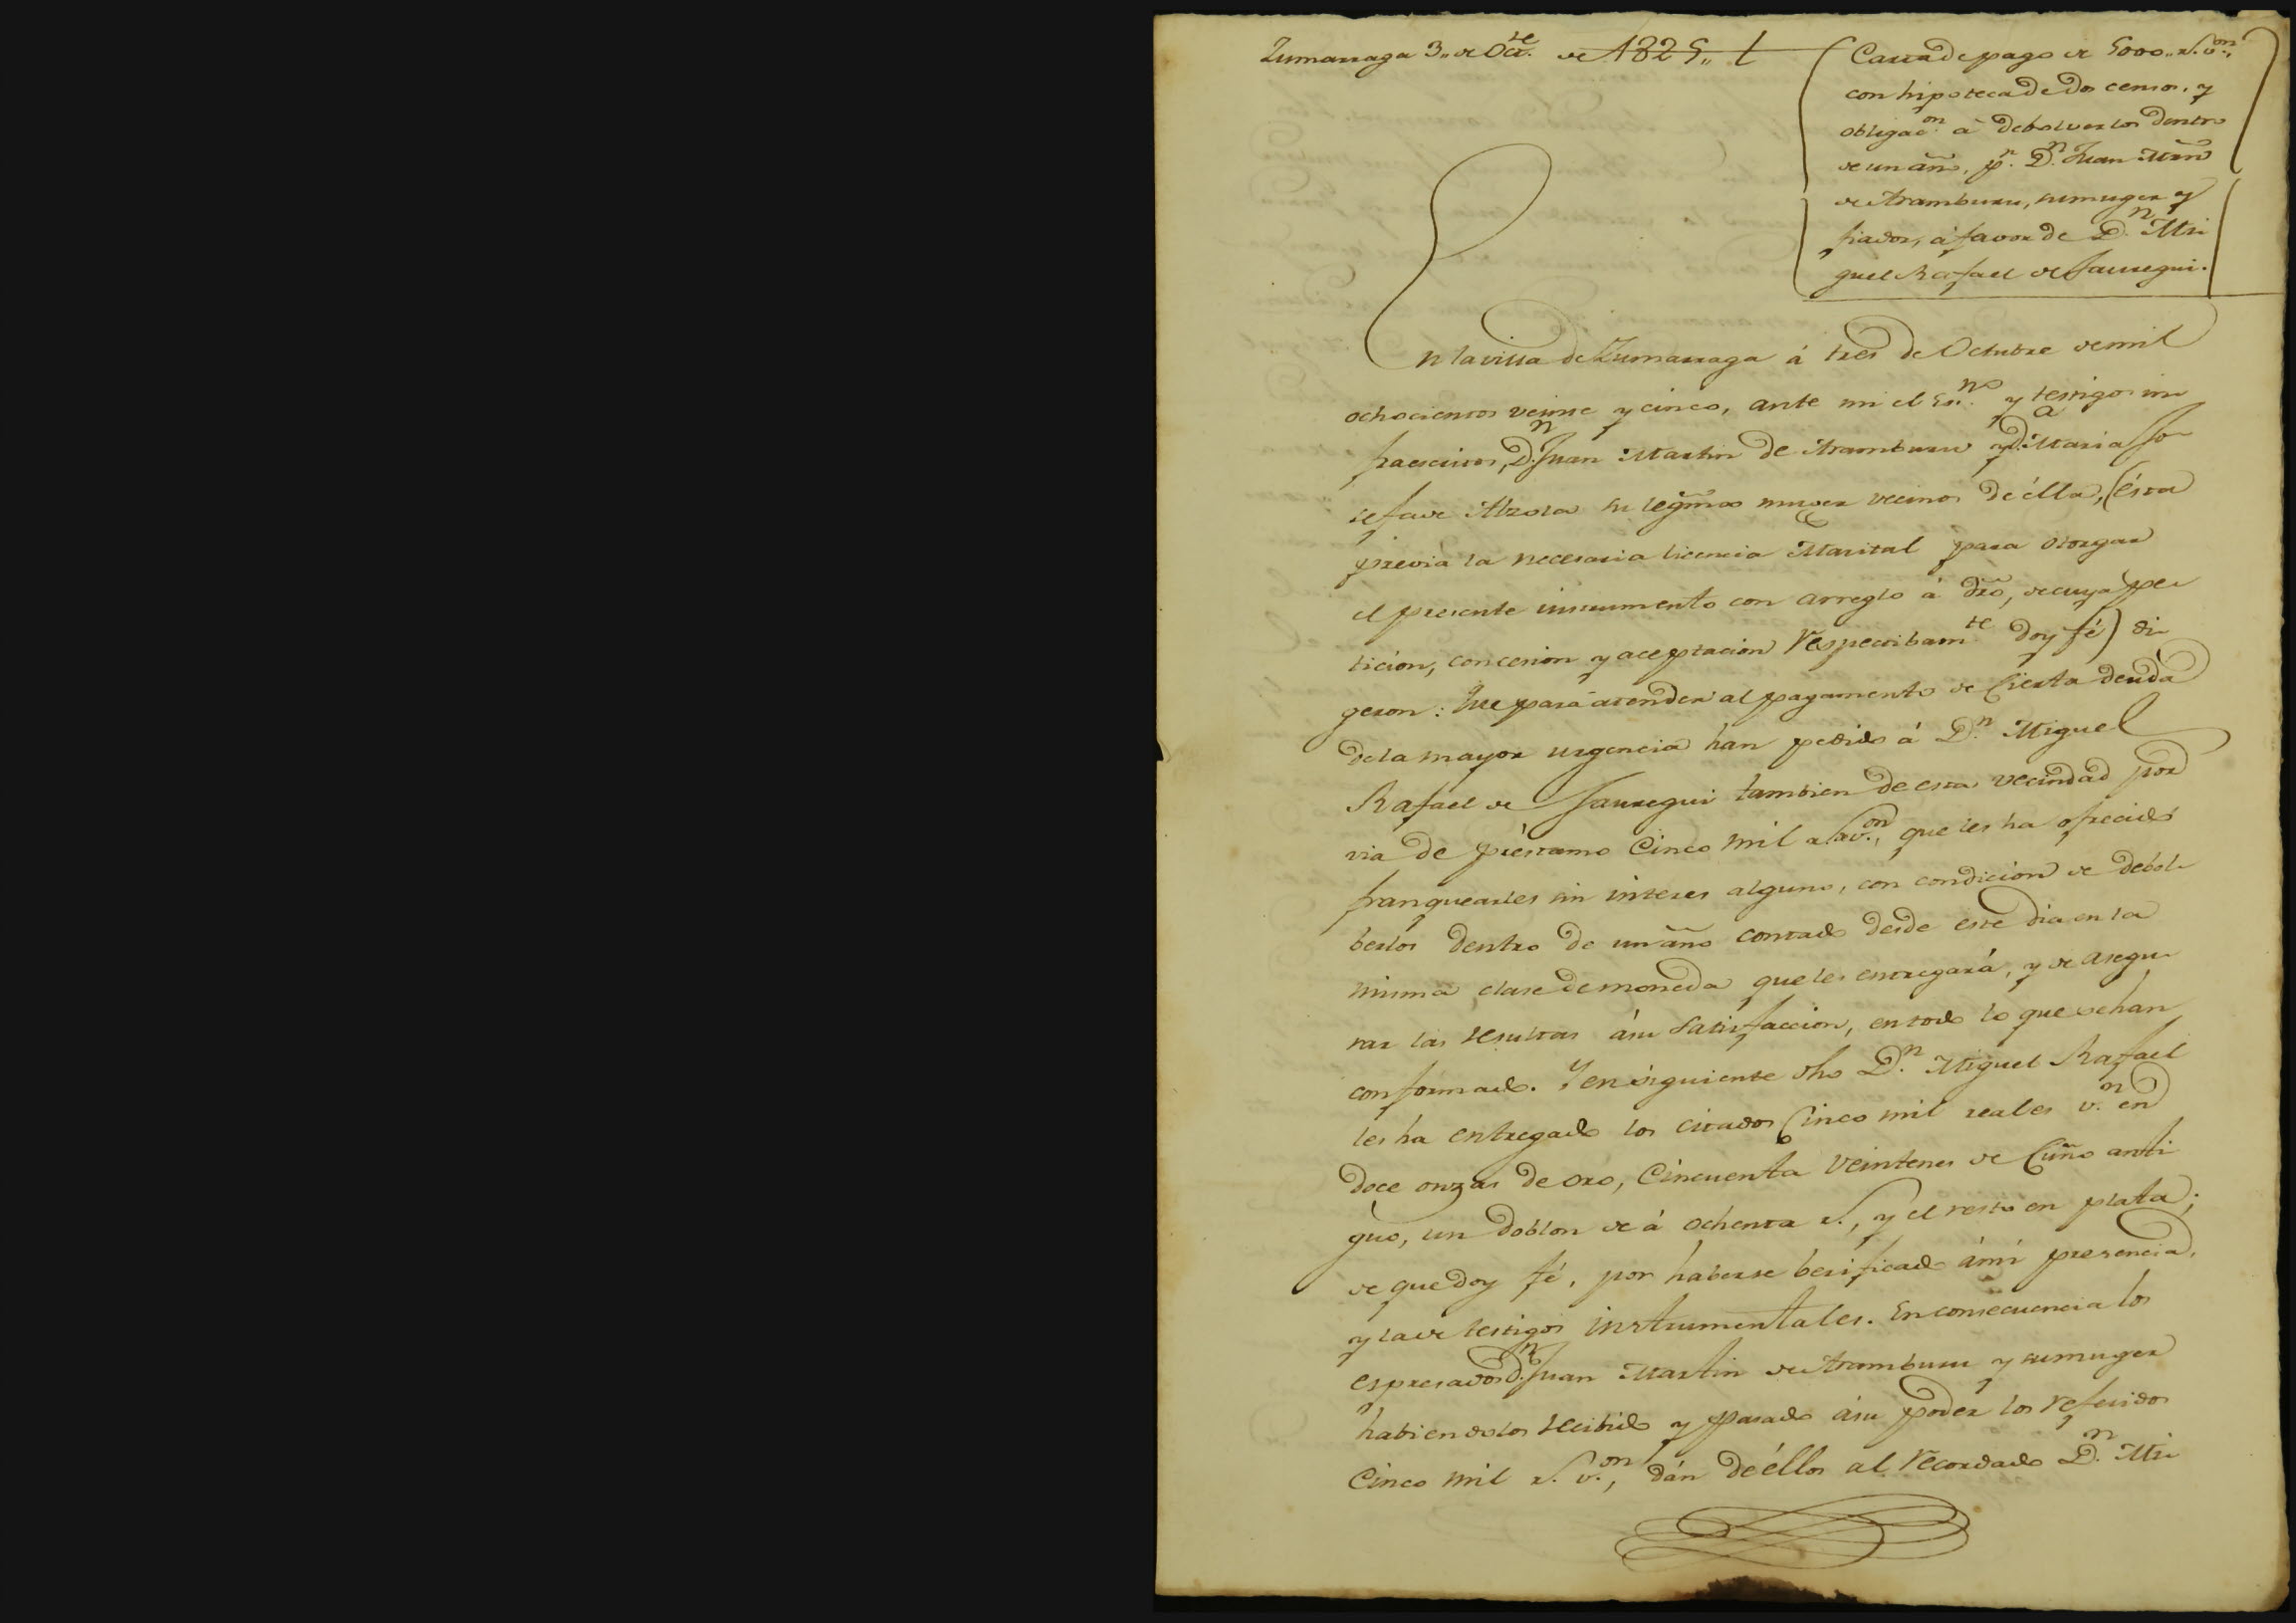 Zumarraga 3,, de Oct.re de 1825,,
Carta de pago de 5000,, r.s v.on,
con hipoteca de dos censos, y
obligac.on á debolverlos dentro
de un año, p.r D.n Juan Mrñ
de Aramburu, su muger y
fiador, á favor de D.n Mi
guel Rafael de Jauregui.
En la villa de Zumarraga á tres de Octubre de mil
ochocientos veinte y cinco, ante mi el Es.no y testigos in
fraescritos, D.n Juan Martin de Aramburu y D.a Maria Jo
sefa de Alzola su legñma muger vecinos de élla, (ésta
previa la necesaria licencia Marital para otorgar
el presente instrumento con arreglo á dro, de cuya pe
ticion, concesion y aceptacion respectibam.te doy fé) di
geron: Que para atender al pagamento de cierta deuda
de la mayor urgencia han pedido á D.n Miguel
Rafael de Jauregui tambien de esta vecindad por
via de préstamo Cinco mil r.s v.on, que les ha ofrecido
franquearles sin interes alguno, con condicion de debol
berlos dentro de un año contado desde este dia en la
misma clase de moneda que les entregará, y de asegu
rar las resultas á su satisfaccion, en todo lo que se han
conformado. Y en siguiente dho D.n Miguel Rafael
les ha entregado los citados Cinco mil reales v.n en
doce onzas de oro, Cincuenta veintenes de Cuño anti
guo, un doblon de á ochenta r.s, y el resto en plata;
de que doy fé, por haberse berificado á mi presencia,
y la de testigos instrumentales. En consecuencia los
espresados D.n Juan Martin de Aramburu y su muger
habiendolos recibido y pasado á su poder los referidos
Cinco mil r.s v.on, dán de éllos al recordado D.n Mi